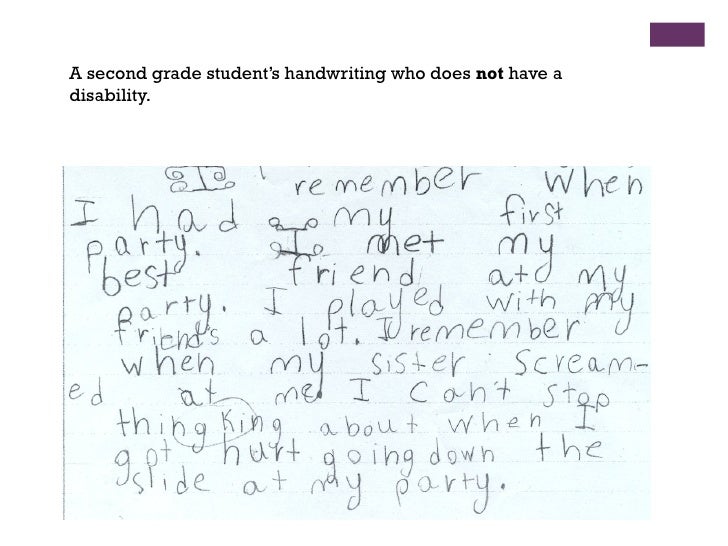 A second grade student's handwriting who does not have a
disability.
I remember When
I had my first
party. I met my
best friend at my
party. I played with my
friend's a lot. I remember
when my sister Scream-
ed at me I can't stop
thingKing about when I
got hurt going down the
slide at my party.